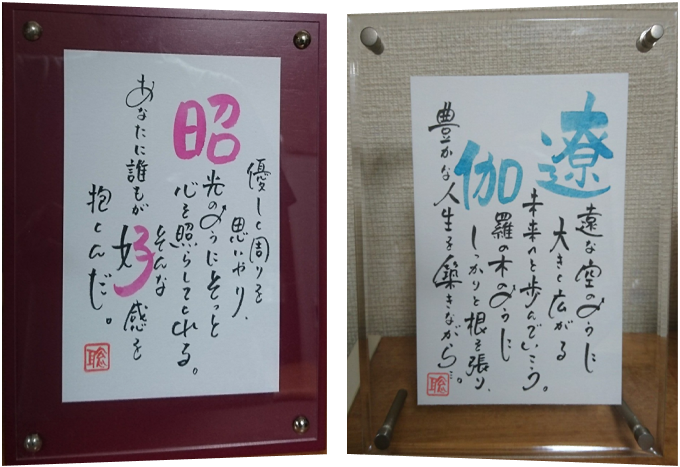 優しく周りを
思いやり、
昭光のようにそっと
心を照らしてくれる。
そんな
あなたに誰もが好感を
抱くんだ。
遼遠な空のように
大きく広がる
未来へと歩んでいこう。
伽羅の木のように
しっかりと根を張り、
豊かな人生を築きながら…。